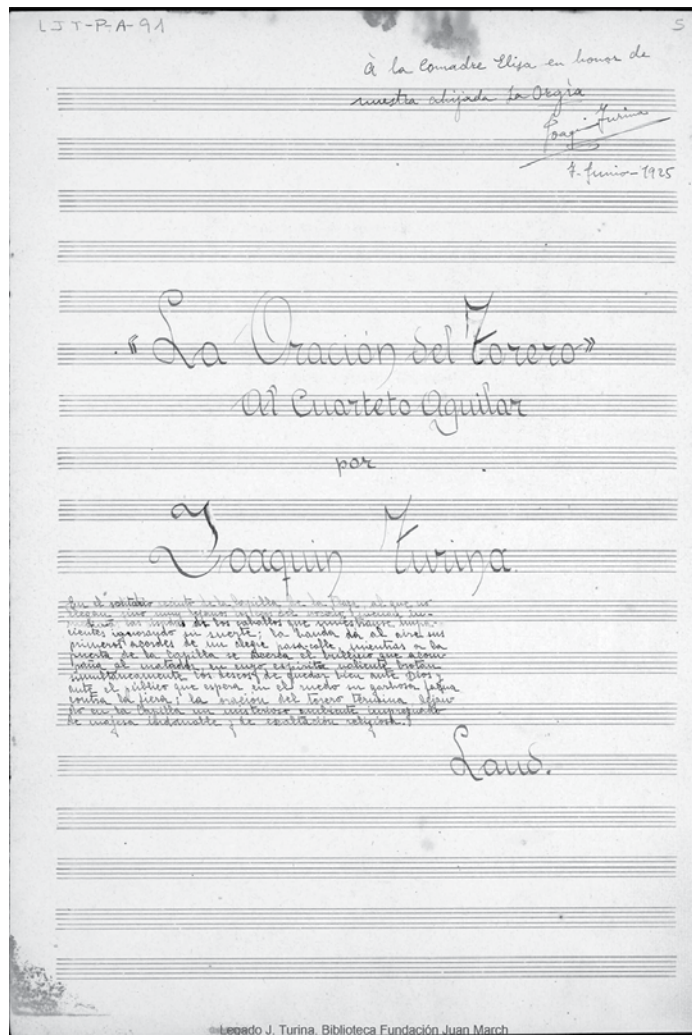 LJT-P-A-91
5
À la Comadre Elisa en honor de
nuestra ahijada La Orgía
Joaquin Turina
7-Junio-1925
"La Oración del Torero"
Al Cuarteto Aguilar
por
Joaquin Turina.
En el solitario recinto de la Capilla de la Plaza, al que no
llegan sino muy lejanos
las de los caballos que impa-
cientes ignorando su suerte; la banda da al aire sus
primeros acordes de un alegre paso-calle, mientras a la
puerta de la Capilla se acerca el bullicio que acom-
paña al matador, en cuyo espíritu valiente brotan
simultaneamente los deseos de quedar bien ante Dios y
ante el público que espera en el ruedo su garbosa faena
contra la fiera; la oración del torero termina dejan-
do en la Capilla un misterioso ambiente impregnado
de majeza indomable y de exaltación religiosa.
Laud.
Legado J. Turina. Biblioteca Fundación Juan March